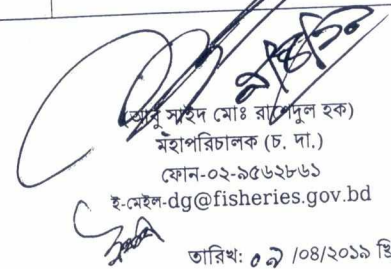 (আবু সাইদ মোঃ রাশেদুল হক)
মহাপরিচালক (চ. দা.)
ফোন-০২-৯৫৬২৮৬১
ই-মেইল-dg@fisheries.gov.bd
তারিখ: ০৯ /০৪/২০১৯ খ্রি